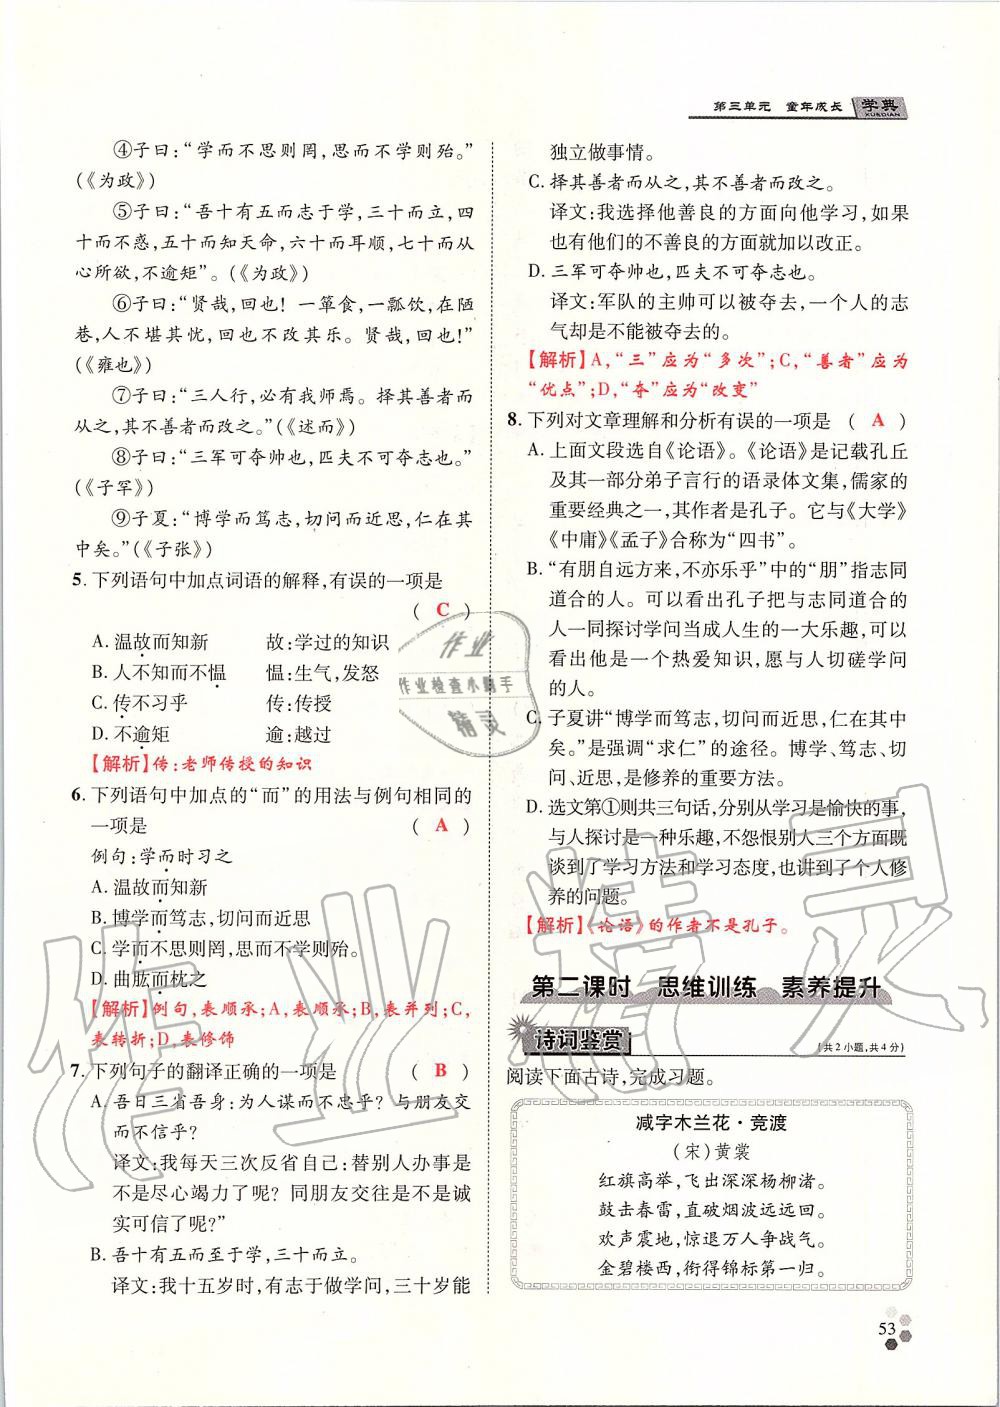 第三单元 童年成长 学典
XUEDIAN
④子曰：“学而不思则罔，思而不学则殆。”
（《为政》）
⑤子曰：“吾十有五而志于学，三十而立，四
十而不惑，五十而知天命，六十而耳顺，七十而从
心所欲，不逾矩”。（《为政》）
⑥子曰：“贤哉，回也！一箪食，一瓢饮，在陋
巷，人不堪其忧，回也不改其乐。贤哉，回也！”
（《雍也》）
⑦子曰：“三人行，必有我师焉。择其善者而
从之，其不善者而改之。”（《述而》）
⑧子曰：“三军可夺帅也，匹夫不可夺志也。”
（《子罕》）
⑨子夏：“博学而笃志，切问而近思，仁在其
中矣。”（《子张》）
5. 下列语句中加点词语的解释，有误的一项是
（ C ）
A. 温故而知新 故：学过的知识
B. 人不知而不愠 愠：生气，发怒
C. 传不习乎 传：传授
D. 不逾矩 逾：越过
【解析】传：老师传授的知识
6. 下列语句中加点的“而”的用法与例句相同的
一项是 （ A ）
例句：学而时习之
A. 温故而知新
B. 博学而笃志，切问而近思
C. 学而不思则罔，思而不学则殆。
D. 曲肱而枕之
【解析】例句，表顺承；A，表顺承；B，表并列；C，
表转折；D，表修饰
7. 下列句子的翻译正确的一项是 （ B ）
A. 吾日三省吾身：为人谋而不忠乎？与朋友交
而不信乎？
译文：我每天三次反省自己：替别人办事是
不是尽心竭力了呢？同朋友交往是不是诚
实可信了呢？”
B. 吾十有五而至于学，三十而立。
译文：我十五岁时，有志于做学问，三十岁能
独立做事情。
C. 择其善者而从之，其不善者而改之。
译文：我选择他善良的方面向他学习，如果
也有他们的不善良的方面就加以改正。
D. 三军可夺帅也，匹夫不可夺志也。
译文：军队的主帅可以被夺去，一个人的志
气却是不能被夺去的。
【解析】A，“三”应为“多次”；C，“善者”应为
“优点”；D，“夺”应为“改变”
8. 下列对文章理解和分析有误的一项是 （ A ）
A. 上面文段选自《论语》。《论语》是记载孔丘
及其一部分弟子言行的语录体文集，儒家的
重要经典之一，其作者是孔子。它与《大学》
《中庸》《孟子》合称为“四书”。
B. “有朋自远方来，不亦乐乎”中的“朋”指志同
道合的人。可以看出孔子把与志同道合的
人一同探讨学问当成人生的一大乐趣，可以
看出他是一个热爱知识，愿与人切磋学问
的人。
C. 子夏讲“博学而笃志，切问而近思，仁在其中
矣。”是强调“求仁”的途径。博学、笃志、切
问、近思，是修养的重要方法。
D. 选文第①则共三句话，分别从学习是愉快的事，
与人探讨是一种乐趣，不怨恨别人三个方面既
谈到了学习方法和学习态度，也讲到了个人修
养的问题。
【解析】《论语》的作者不是孔子。
第二课时 思维训练 素养提升
诗词鉴赏 （共2小题，共4分）
阅读下面古诗，完成习题。
减字木兰花·竞渡
（宋）黄裳
红旗高举，飞出深深杨柳渚。
鼓击春雷，直破烟波远远回。
欢声震地，惊退万人争战气。
金碧楼西，衔得锦标第一归。
53
作业
作业检查小助手
精灵
作业精灵